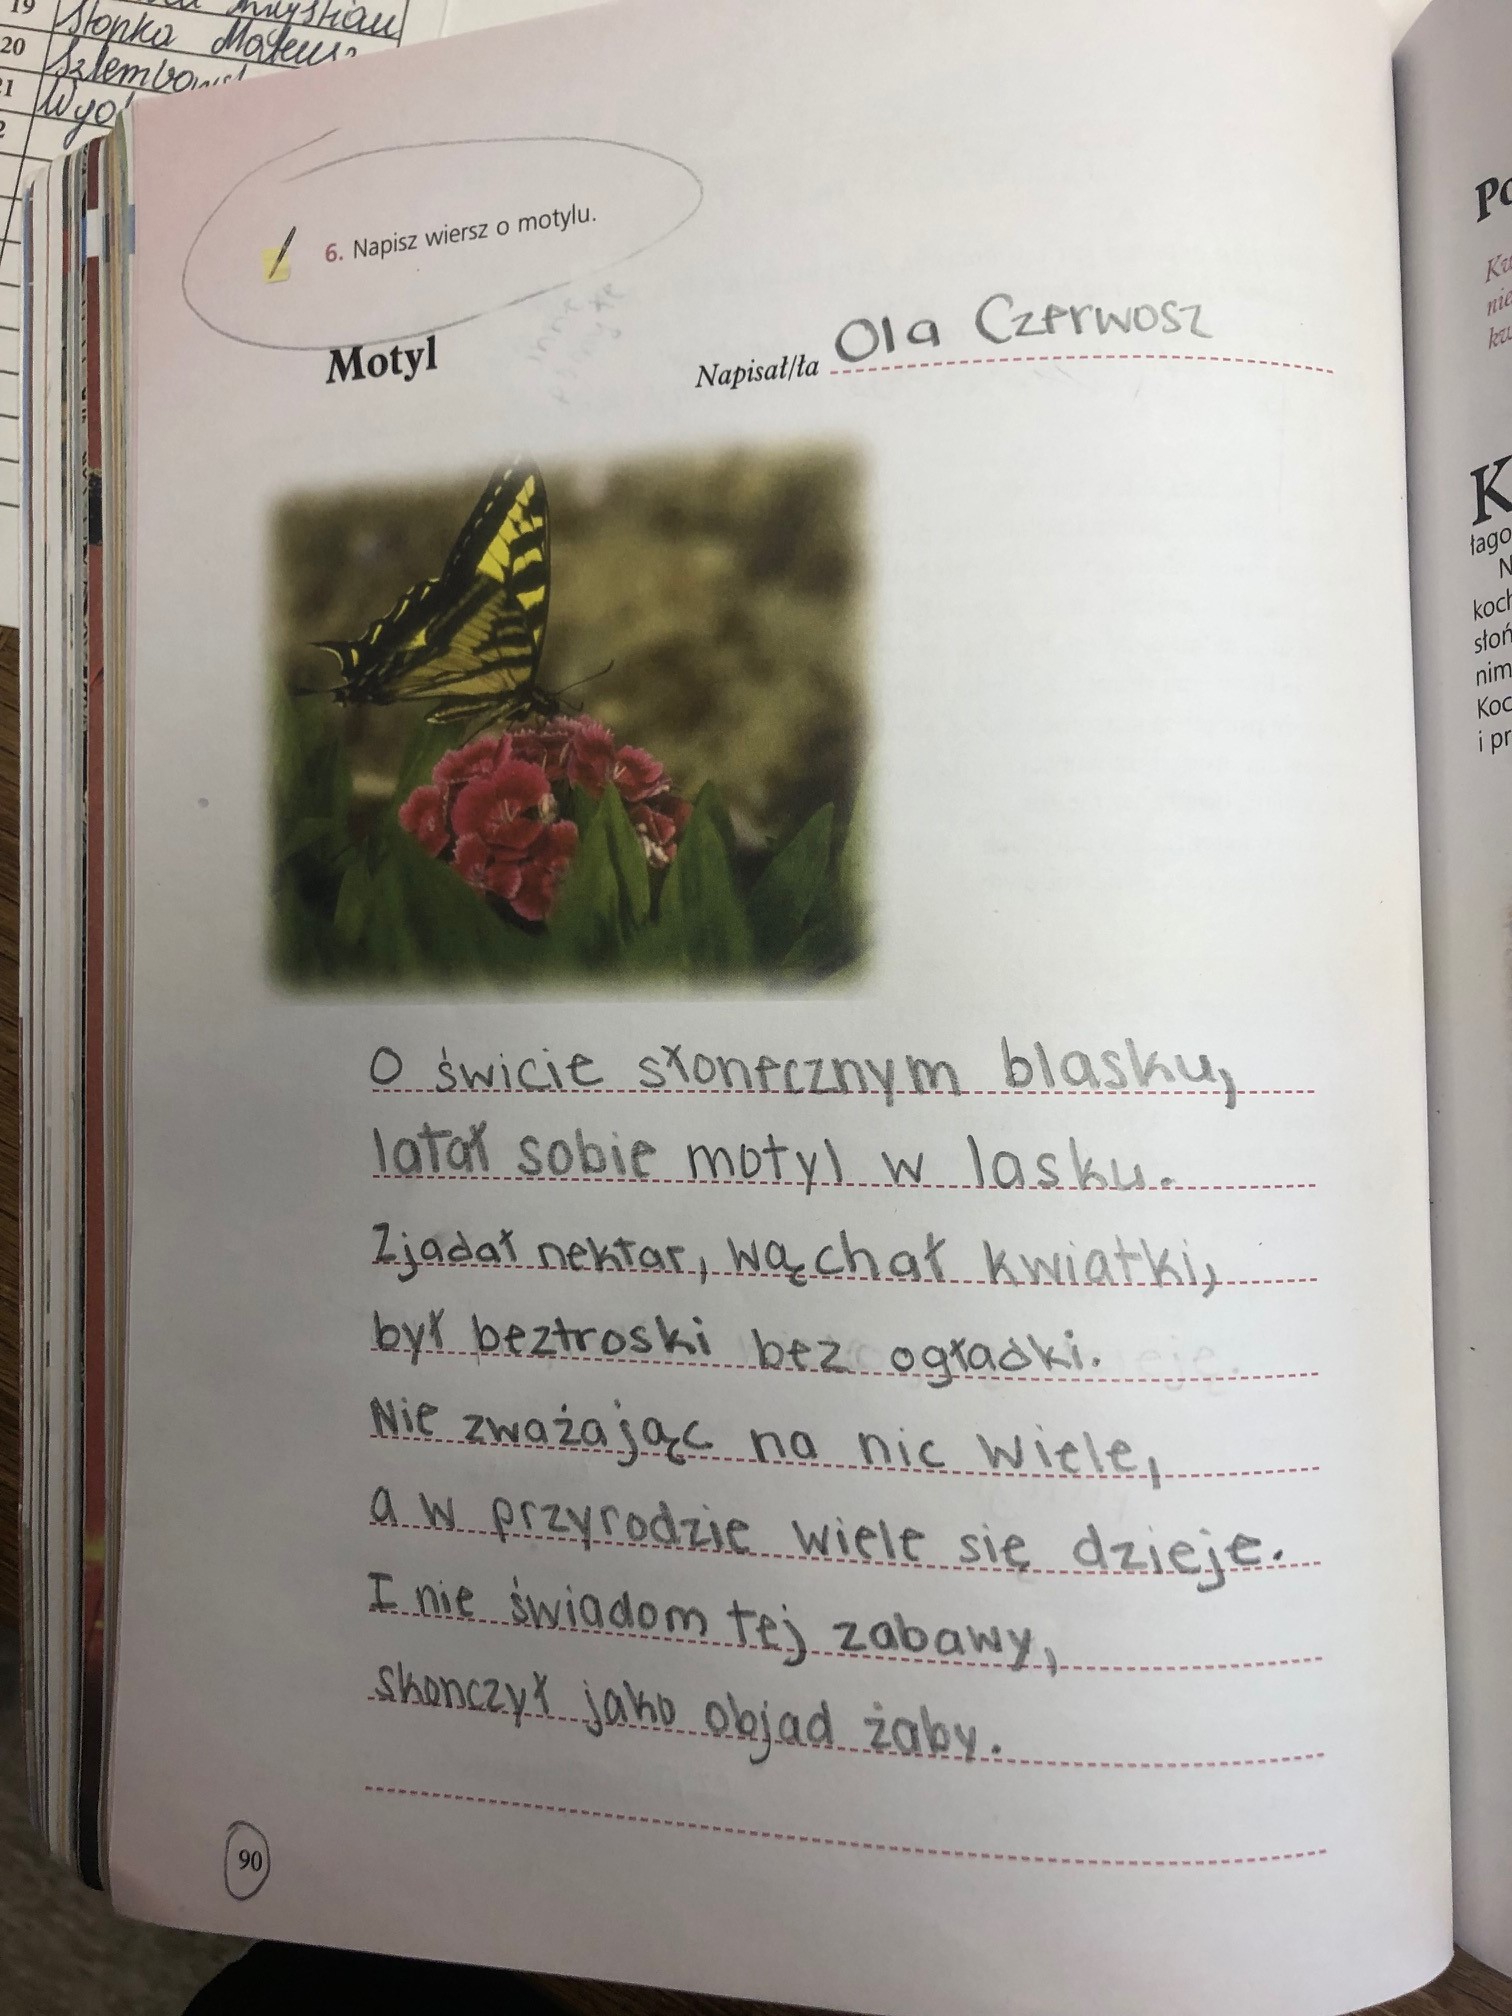 19
20 Słopka Mateusz
21
6. Napisz wiersz o motylu.
inne
Motyl
Napisał/ła Ola Czerwosz
O świcie słonecznym blasku,
latał sobie motyl w lasku.
Zjadał nektar, wąchał kwiatki,
był beztroski bez ogładki.
Nie zważając na nic wiele,
a w przyrodzie wiele się dzieje.
I nie świadom tej zabawy,
skonczył jako objad żaby.
90
Po
K
łago
N
koch
słoń
nim
Koc
i pr